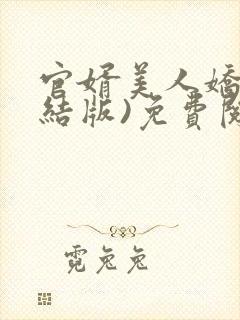 官婿美人嬌
結版)免費閱
霓兔兔